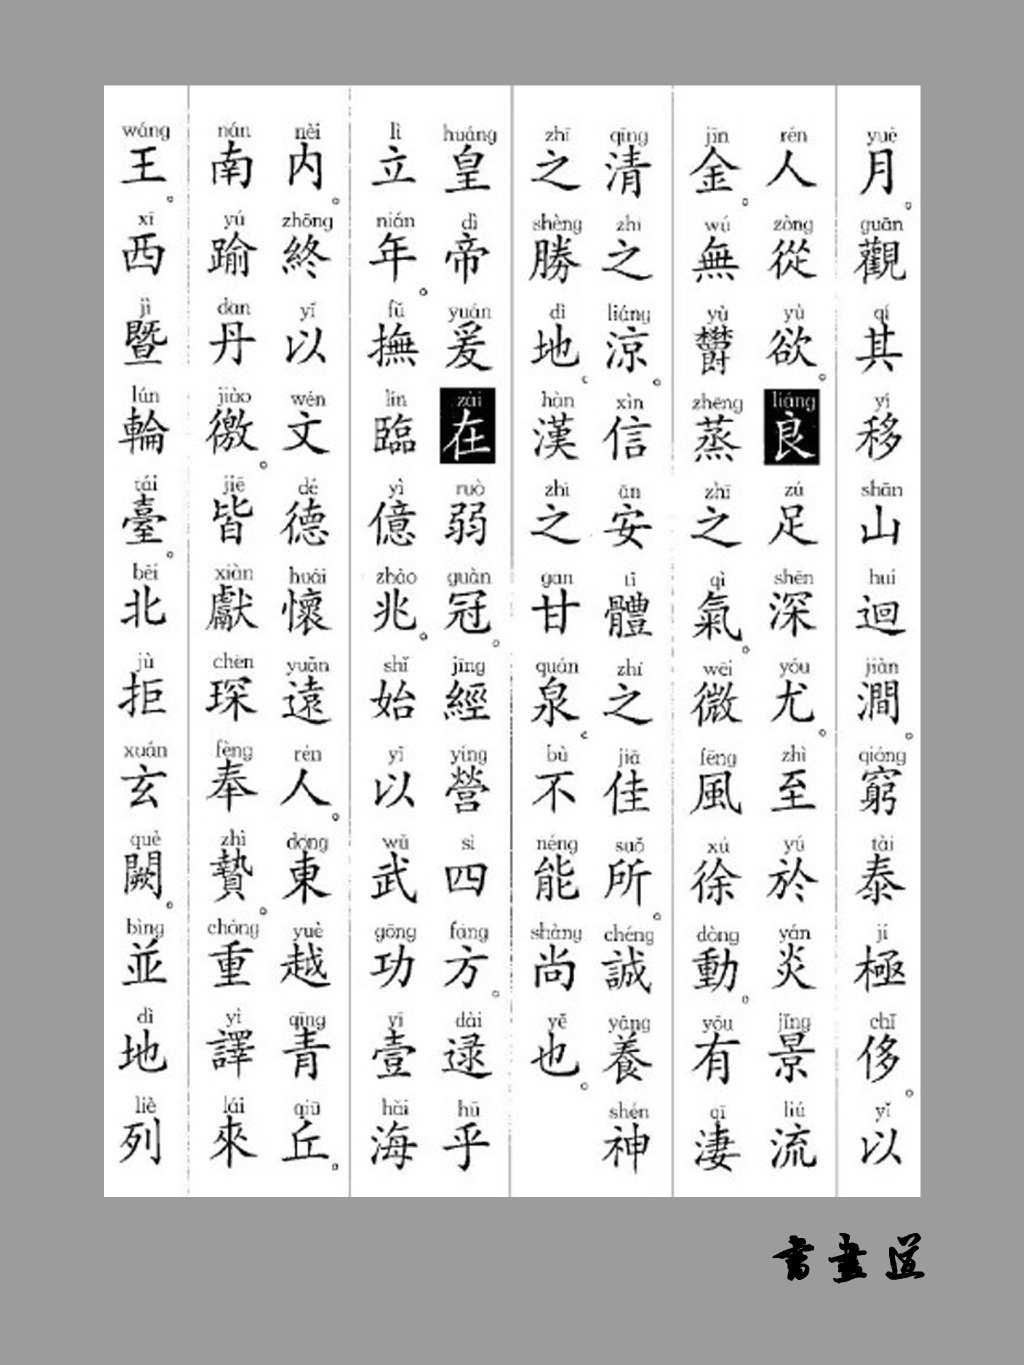 yuè guān qí yí shān huí jiàn qióng tài jí chǐ yǐ
月。觀其移山迴澗。窮泰極侈。以
rén zòng yù liáng zú shēn yóu zhì yú yán jǐng liú
人從欲。良足深尤。至於炎景流
jīn wú yù zhēng zhī qì wēi fēng xú dòng yǒu qī
金。無鬱蒸之氣。微風徐動。有淒
qīng zhī liáng xìn ān tǐ zhī jiā suǒ chéng yǎng shén
清之涼。信安體之佳所。誠養神
zhī shèng dì hàn zhī gān quán bù néng shàng yě
之勝地。漢之甘泉。不能尚也。
huáng dì yuán zài ruò guàn jīng yíng sì fāng dài hū
皇帝爰在弱冠。經營四方。逮乎
lì nián fǔ lín yì zhào shǐ yǐ wǔ gōng yī hǎi
立年。撫臨億兆。始以武功壹海
nèi zhōng yǐ wén dé huái yuǎn rén dōng yuè qīng qiū
內。終以文德懷遠人。東越青丘。
nán yú dān jiào jiē xiàn chēn fèng zhì chóng yì lái
南踰丹徼。皆獻琛奉贄。重譯來
wáng xī jì lún tái běi jù xuán què bìng dì liè
王。西暨輪臺。北拒玄闕。並地列
書畫道